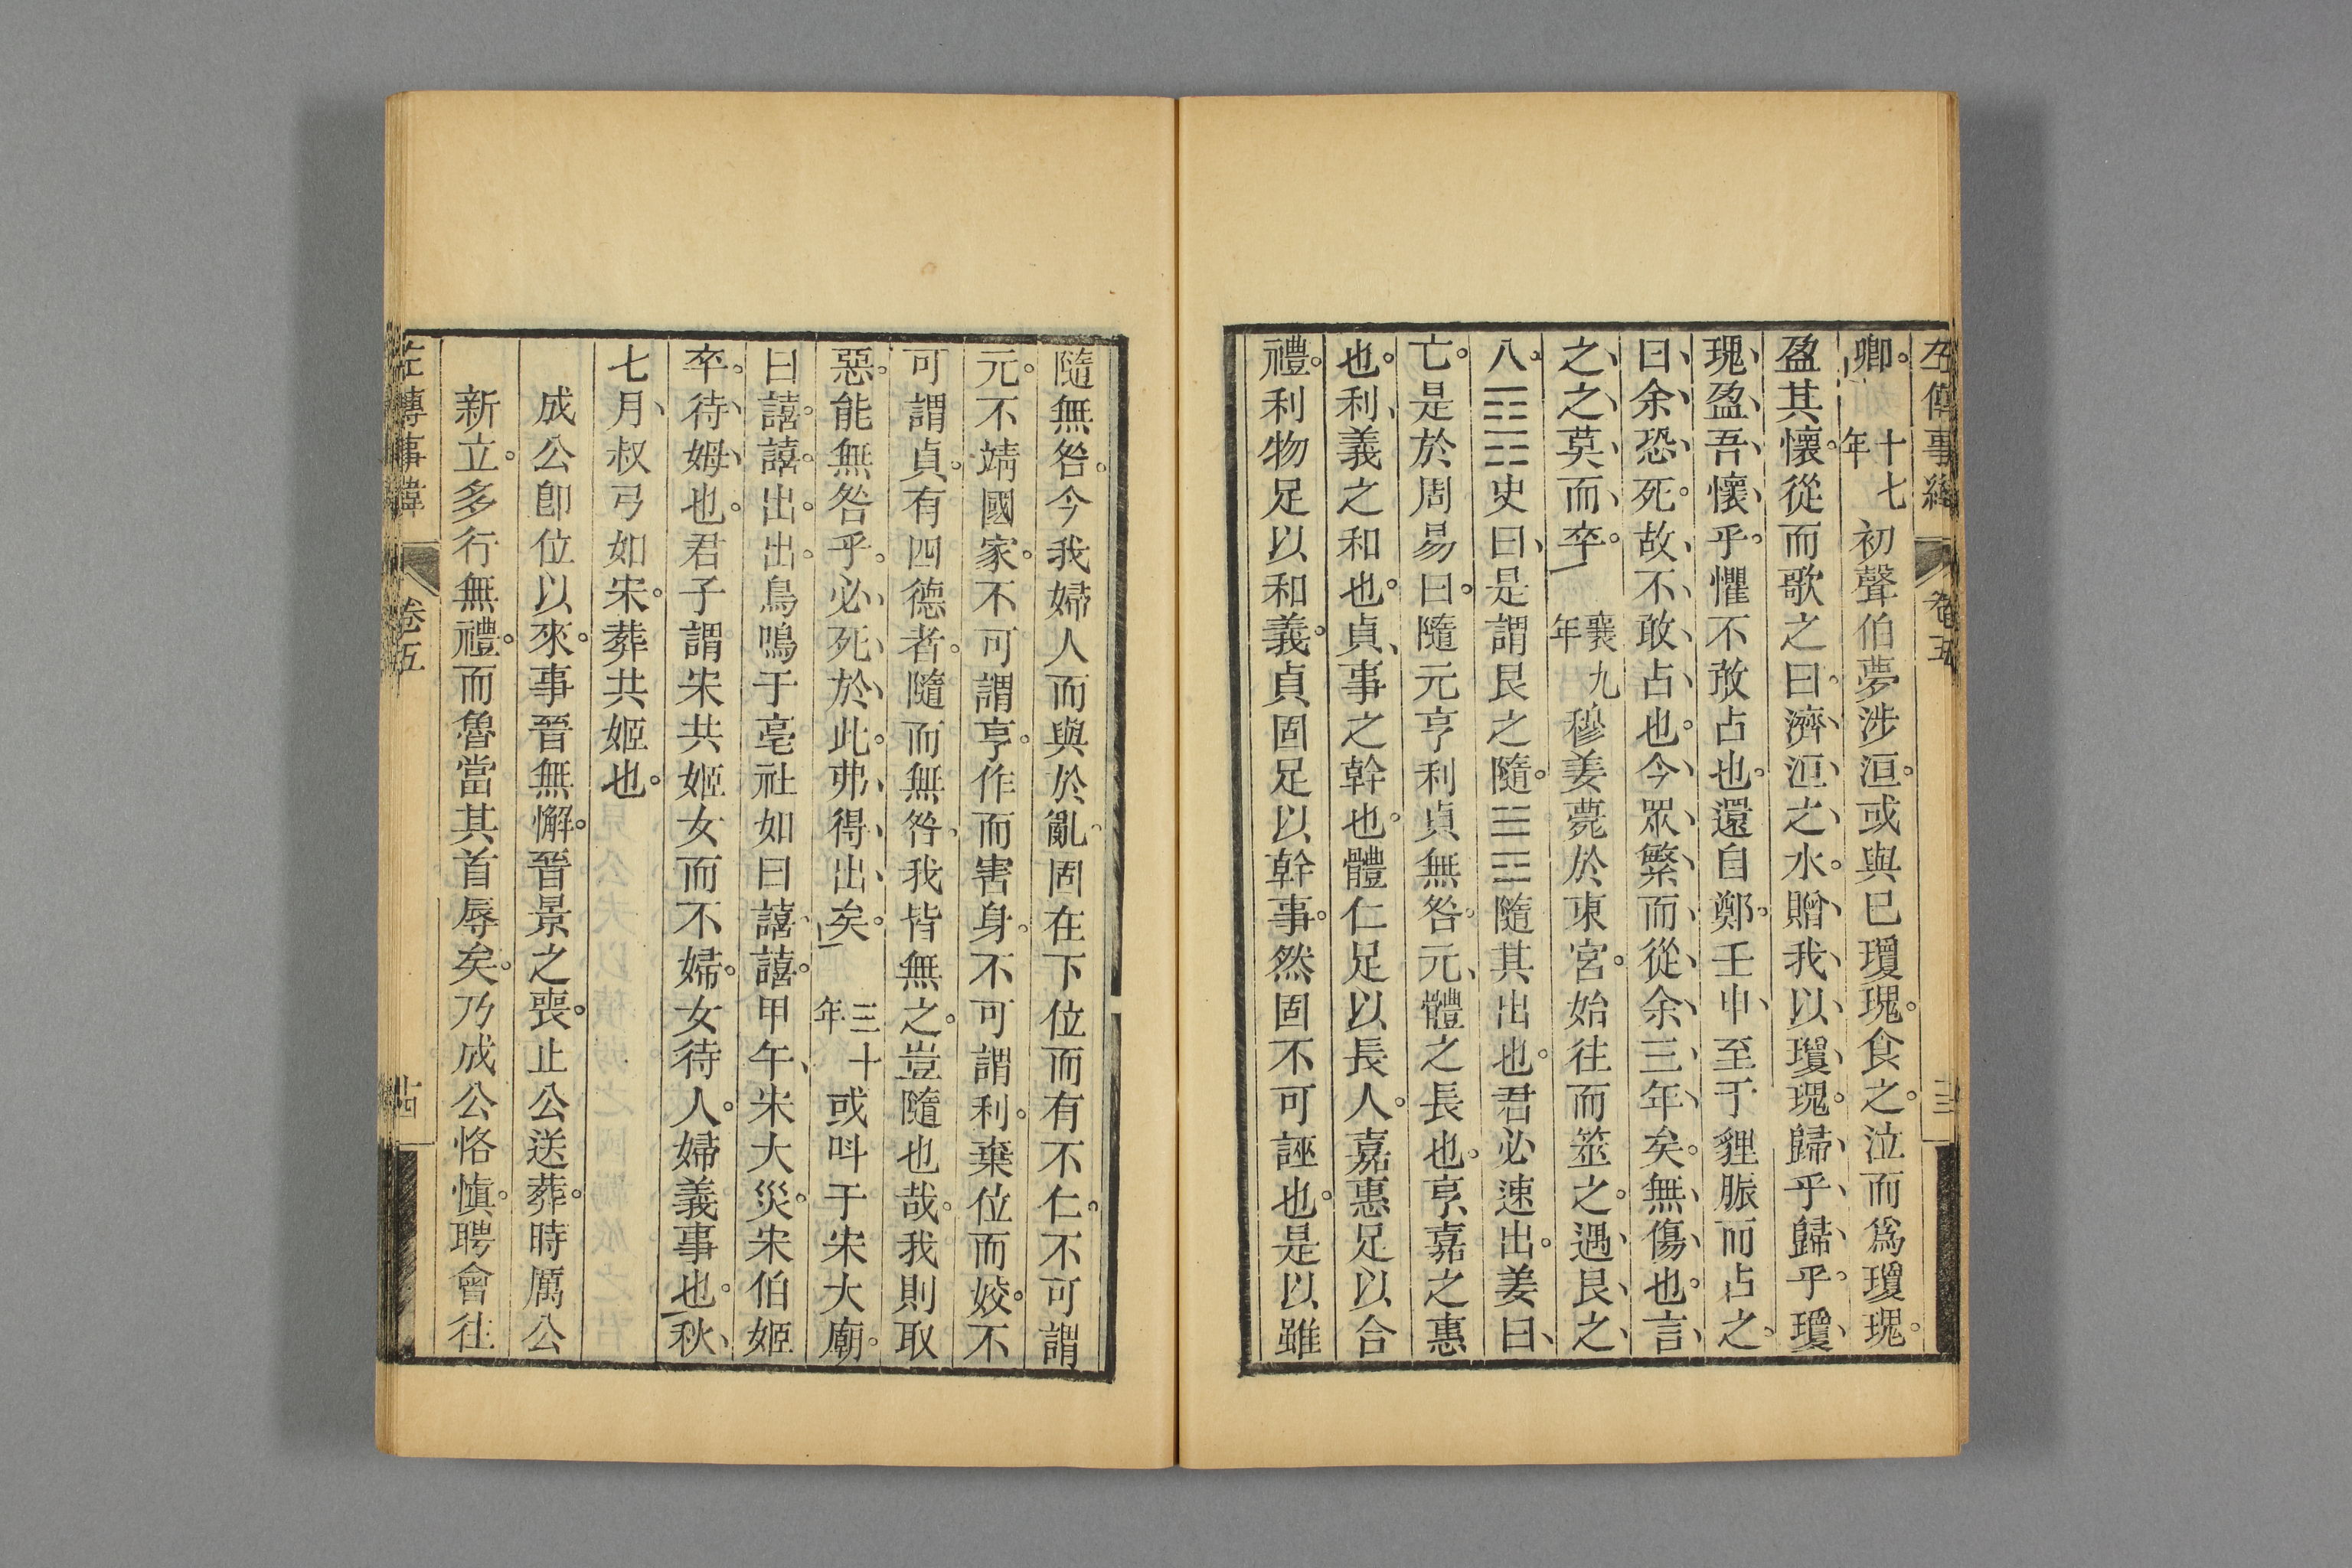 左傳事緯 卷五
卿。十七年初聲伯夢涉洹。或與己瓊瑰。食之。泣而爲瓊瑰。
盈其懷。從而歌之曰。濟洹之水。贈我以瓊瑰。歸乎歸乎。瓊
瑰盈吾懷乎。懼不敢占也。還自鄭。壬申、至于貍脤而占之。
曰、余恐死。故不敢占也。今眾繁而從余三年矣。無傷也。言
之、之莫而卒。襄九年穆姜薨於東宮。始往而筮之。遇艮之
八。☶☶史曰、是謂艮之隨。☱☳隨其出也。君必速出。姜曰、
亡。是於周易曰。隨元亨利貞無咎。元、體之長也。亨、嘉之惠
也。利、義之和也。貞、事之幹也。體仁足以長人。嘉惠足以合
禮。利物足以和義。貞固足以幹事。然固不可誣也。是以雖
隨無咎。今我婦人而與於亂。固在下位而有不仁。不可謂
元。不靖國家。不可謂亨。作而害身。不可謂利。棄位而姣。不
可謂貞。有四德者。隨而無咎、我皆無之。豈隨也哉。我則取
惡。能無咎乎。必死於此。弗得出矣。三十年或呌于宋大廟。
曰譆譆。出出。鳥鳴于亳社如曰譆譆。甲午、宋大災。宋伯姬
卒。待姆也。君子謂宋共姬女而不婦。女待人。婦義事也。秋、
七月、叔弓如宋。葬共姬也。
成公卽位以來。事晉無懈。晉景之喪。止公送葬。時厲公
新立。多行無禮。而魯當其首辱矣。乃成公恪慎。聘會往
左傳事緯 卷五 廿四